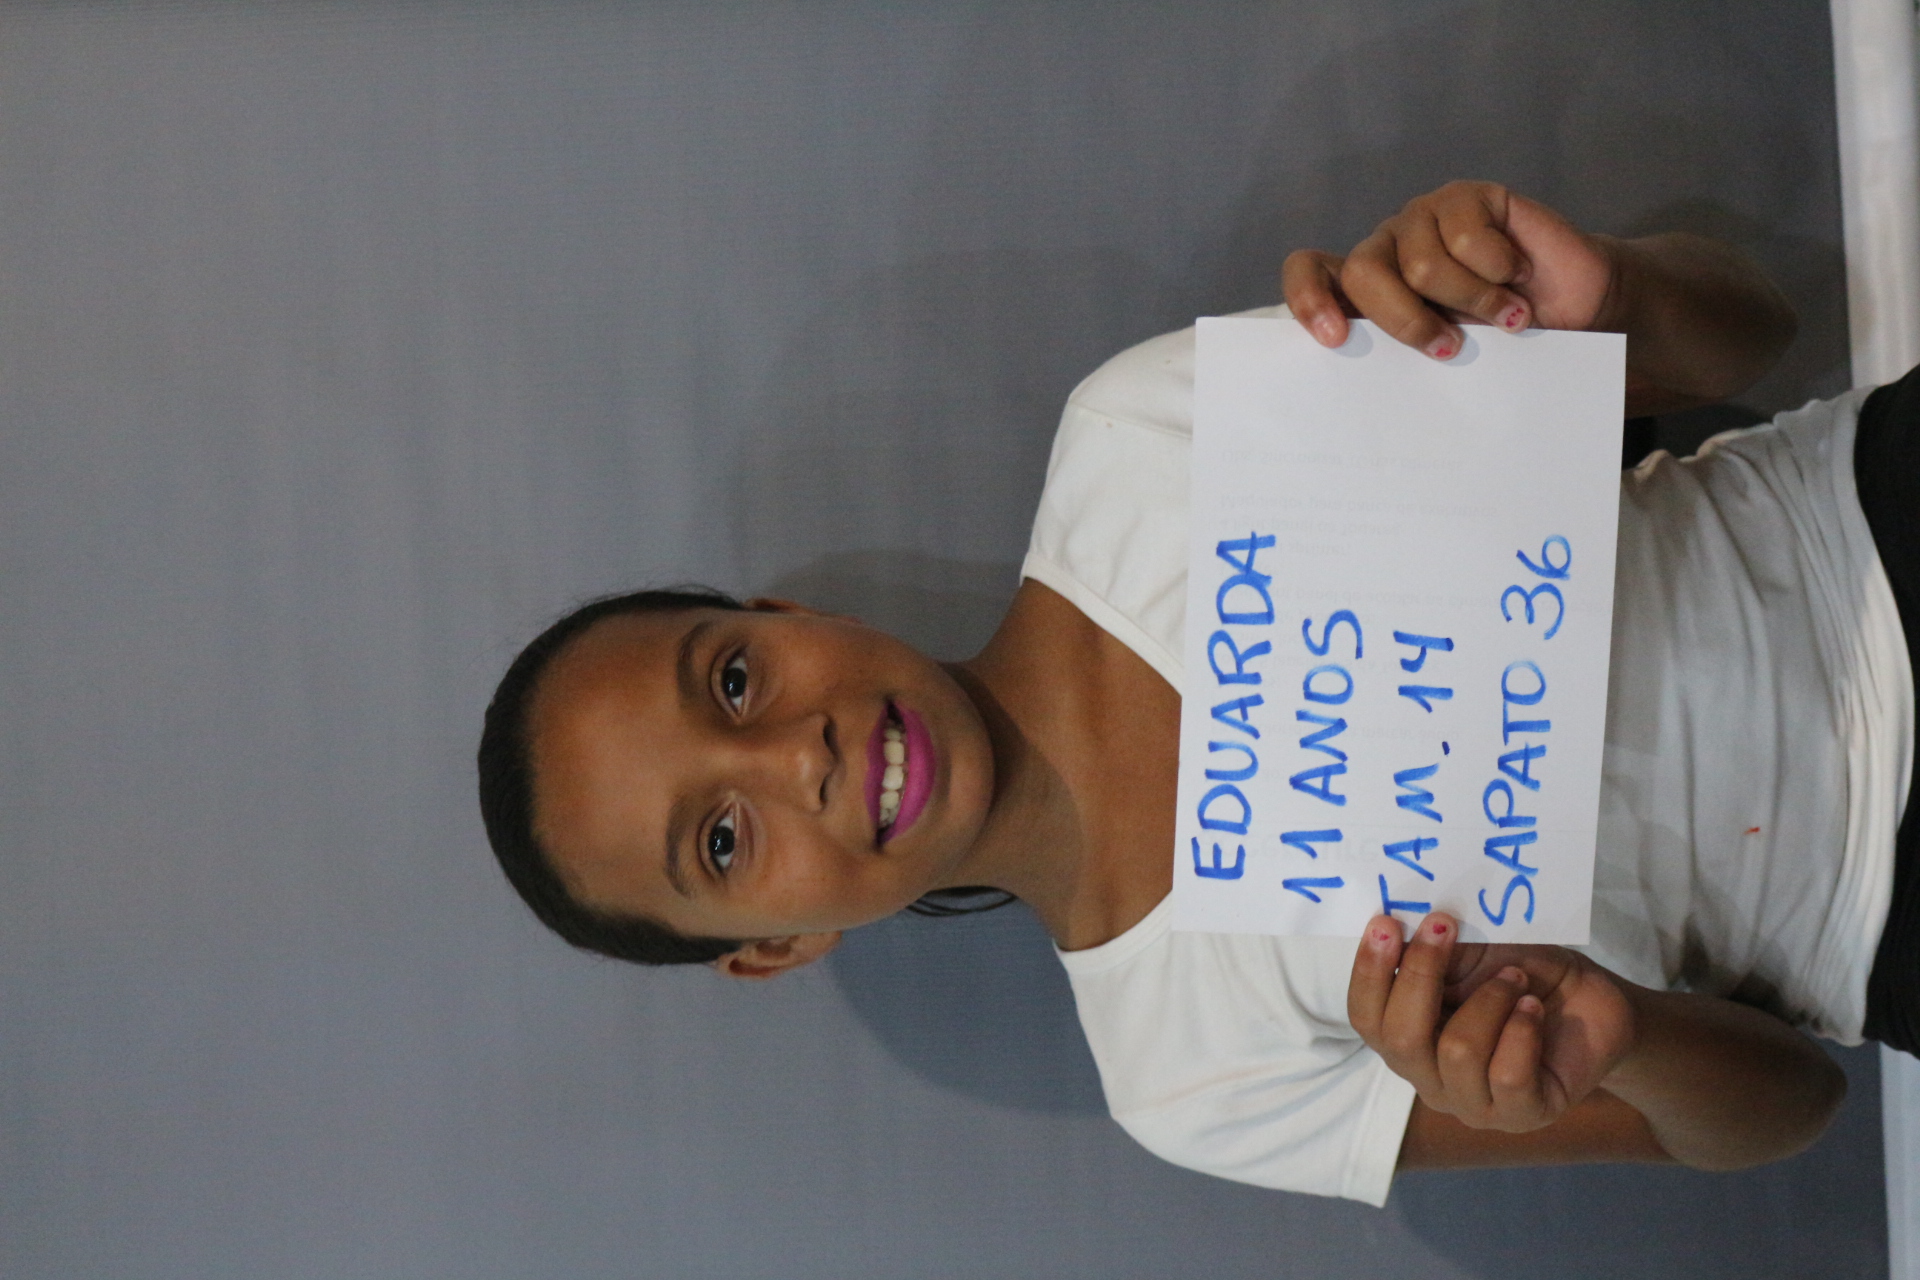 EDUARDA
11 ANOS
TAM. 14
SAPATO 36